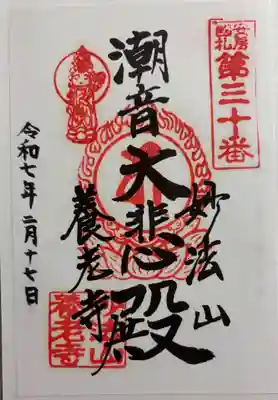 安房国札
第三十番
潮音
大悲殿
妙法山
養老寺
令和七年二月十七日
妙法山
養老寺